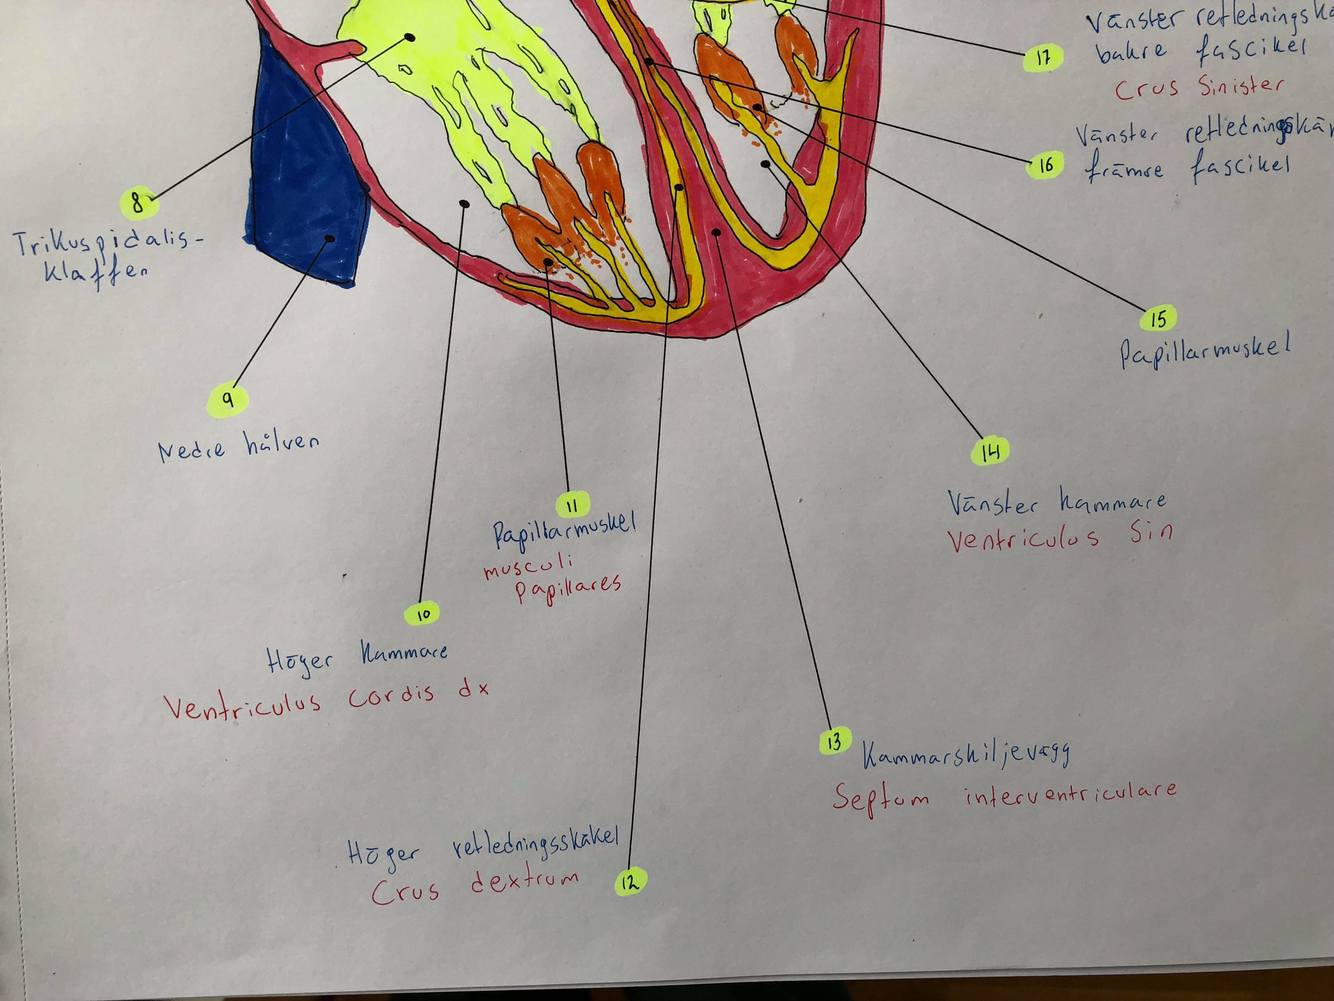 8
Trikuspidalis-
klaffen
9
Nedre hålven
10
Höger kammare
Ventriculus cordis dx
11
Papillarmuskel
musculi
Papillares
12
Höger retledningsskäkel
Crus dextrum
13
Kammarskiljevägg
Septum interventriculare
14
Vänster kammare
Ventriculus Sin
15
Papillarmuskel
16
Vänster
främre fascikel
17
Vänster
bakre fascikel
Crus Sinister